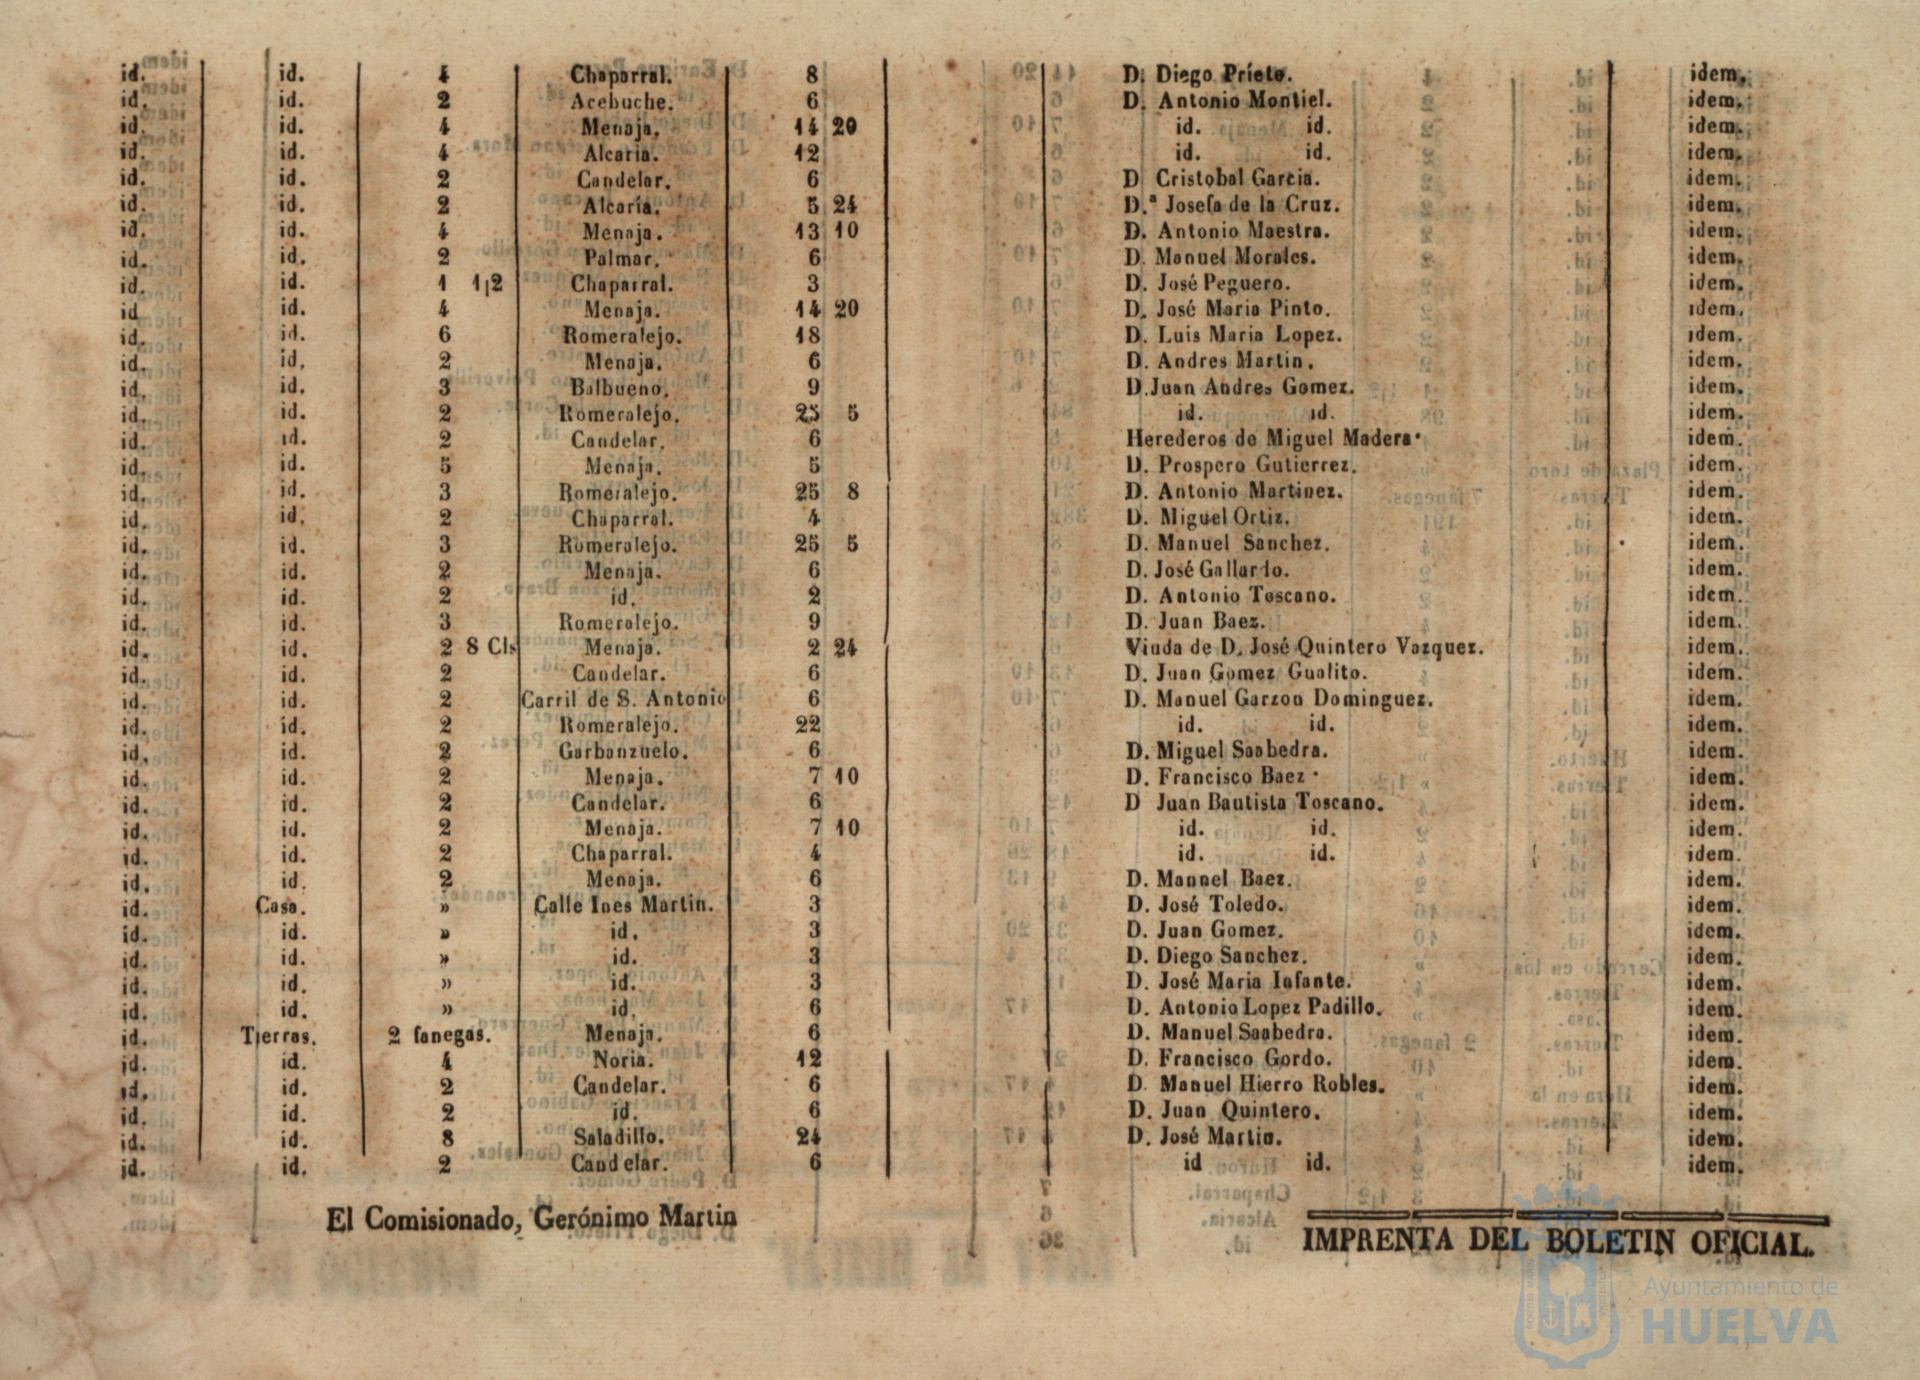 id. id. 4 Chaparral. 8 D. Diego Prieto. idem.
id. id. 2 Acebuche. 6 D. Antonio Montiel. idem.
id. id. 4 Menaja. 14 20 id. id. idem.
id. id. 4 Alcaria. 12 id. id. idem.
id. id. 2 Candelar. 6 D Cristobal Garcia. idem.
id. id. 2 Alcaria. 5 24 D.ª Josefa de la Cruz. idem.
id. id. 4 Menaja. 13 10 D. Antonio Maestra. idem.
id. id. 2 Palmar. 6 D. Manuel Morales. idem.
id. id. 1 1|2 Chaparral. 3 D. José Peguero. idem.
id id. 4 Menaja. 14 20 D. José Maria Pinto. idem.
id. id. 6 Romeralejo. 18 D. Luis Maria Lopez. idem.
id. id. 2 Menaja. 6 D. Andres Martin. idem.
id. id. 3 Balbueno. 9 D. Juan Andres Gomez. idem.
id. id. 2 Romeralejo. 25 5 id. id. idem.
id. id. 2 Candelar. 6 Herederos de Miguel Madera. idem.
id. id. 5 Menaja. 5 D. Prospero Gutierrez. idem.
id. id. 3 Romeralejo. 25 8 D. Antonio Martinez. idem.
id. id. 2 Chaparral. 4 D. Miguel Ortiz. idem.
id. id. 3 Romeralejo. 25 5 D. Manuel Sanchez. idem.
id. id. 2 Menaja. 6 D. José Gallardo. idem.
id. id. 2 id. 2 D. Antonio Toscano. idem.
id. id. 3 Romeralejo. 9 D. Juan Baez. idem.
id. id. 2 8 Cls Menaja. 2 24 Viuda de D. José Quintero Vazquez. idem.
id. id. 2 Candelar. 6 D. Juan Gomez Gualito. idem.
id. id. 2 Carril de S. Antonio 6 D. Manuel Garzon Dominguez. idem.
id. id. 2 Romeralejo. 22 id. id. idem.
id. id. 2 Garbanzuelo. 6 D. Miguel Saabedra. idem.
id. id. 2 Menaja. 7 10 D. Francisco Baez. idem.
id. id. 2 Candelar. 6 D Juan Bautista Toscano. idem.
id. id. 2 Menaja. 7 10 id. id. idem.
id. id. 2 Chaparral. 4 id. id. idem.
id. id. 2 Menaja. 6 D. Mannel Baez. idem.
id. Casa. » Calle Ines Martin. 3 D. José Toledo. idem.
id. id. » id. 3 D. Juan Gomez. idem.
id. id. » id. 3 D. Diego Sanchez. idem.
id. id. » id. 3 D. José Maria Infante. idem.
id. id. » id. 6 D. Antonio Lopez Padillo. idem.
id. Tierras. 2 fanegas. Menaja. 6 D. Manuel Saabedra. idem.
id. id. 4 Noria. 12 D. Francisco Gordo. idem.
id. id. 2 Candelar. 6 D. Manuel Hierro Robles. idem.
id. id. 2 id. 6 D. Juan Quintero. idem.
id. id. 8 Saladillo. 24 D. José Martin. idem.
id. id. 2 Candelar. 6 id id. idem.
El Comisionado, Gerónimo Martin
IMPRENTA DEL BOLETIN OFICIAL.
Ayuntamiento de
HUELVA